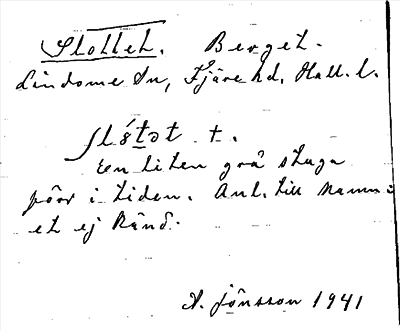 Slottet. Berget.
Lindome Sn, Fjäre hd. Hall. l.
slótət t.
En liten grå stuga
förr i tiden. Anl. till namn-
et ej känd.
A. Jönsson 1941